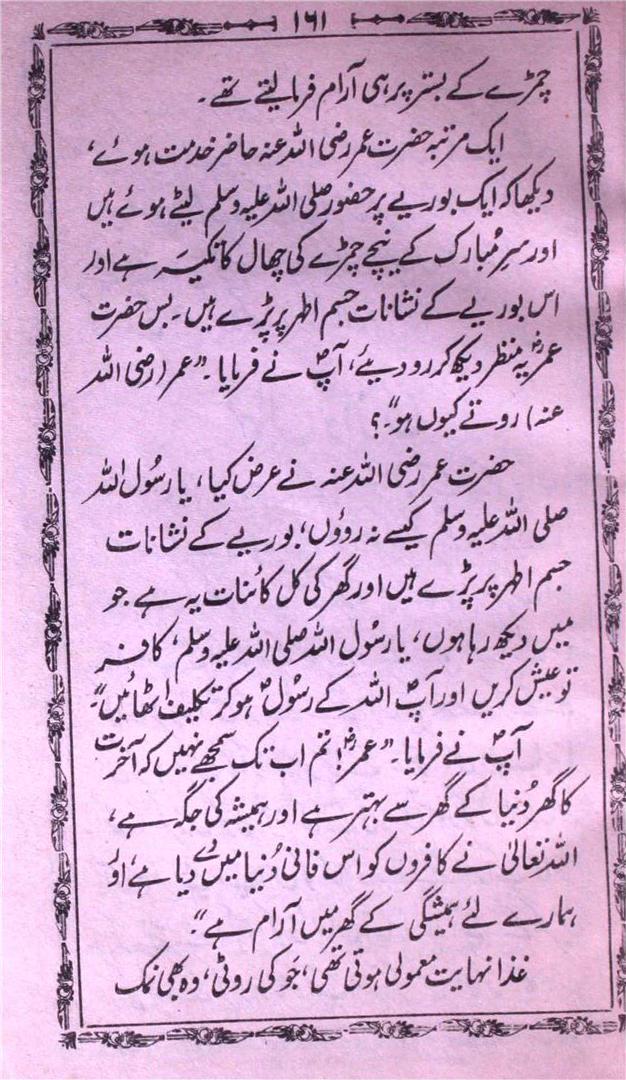 ۱۶۱
چمڑے کے بستر پر ہی آرام فرما لیتے تھے۔
ایک مرتبہ حضرت عمر رضی اللہ عنہ حاضر خدمت ہوئے،
دیکھا کہ ایک بوریے پر حضور صلی اللہ علیہ وسلم لیٹے ہوئے ہیں
اور سرِ مُبارک کے نیچے چمڑے کی چھال کا تکیہَ ہے اور
اس بوریے کے نشانات جسم اطہر پر پڑے ہیں۔ بس حضرت
عمرؓ یہ منظر دیکھ کر رو دیئے، آپؐ نے فرمایا۔ ”عمر (رضی اللہ
عنہ) روتے کیوں ہو“۔؟
حضرت عمر رضی اللہ عنہ نے عرض کیا، یا رسُول اللہ
صلی اللہ علیہ وسلم کیسے نہ روؤں، بوریے کے نشانات
جسم اطہر پر پڑے ہیں اور گھر کی کل کائنات یہ ہے جو
میں دیکھ رہا ہوں، یا رسُول اللہ صلی اللہ علیہ وسلم، کافر
تو عیش کریں اور آپؐ اللہ کے رسُولؐ ہو کر تکلیف اٹھائیں“۔
آپؐ نے فرمایا۔ ”عمرؓ! تم اب تک سمجھے نہیں کہ آخرت
کا گھر دُنیا کے گھر سے بہتر ہے اور ہمیشہ کی جگہ ہے،
اللہ تعالیٰ نے کافروں کو اس فانی دُنیا میں دے دیا ہے، اور
ہمارے لئے ہمیشگی کے گھر میں آرام ہے“۔
غذا نہایت معمولی ہوتی تھی، جَو کی روٹی، وہ بھی نمک